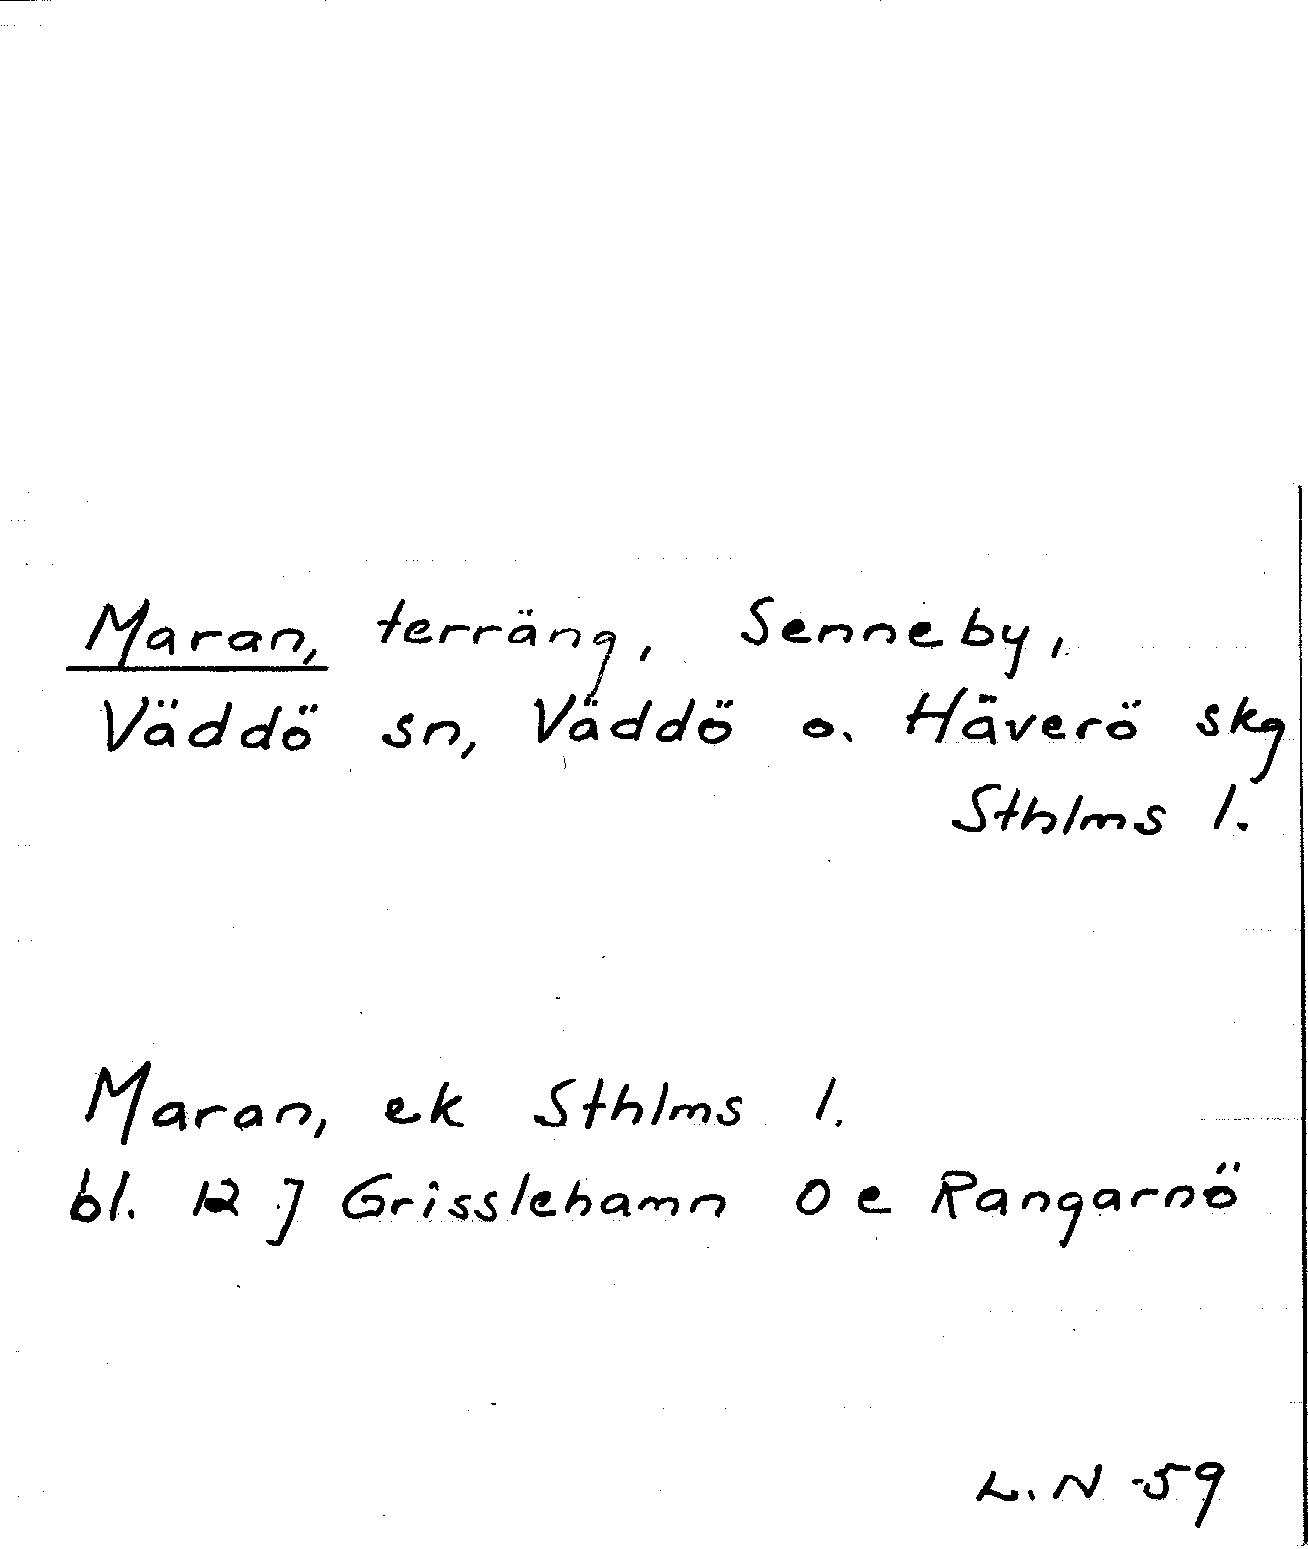 Maran, terräng, Senneby,
Väddö sn, Väddö o. Häverö skg
Sthlms l.
Maran, ek Sthlms l.
bl. 12 J Grisslehamn O e Rangarnö
L. N -59